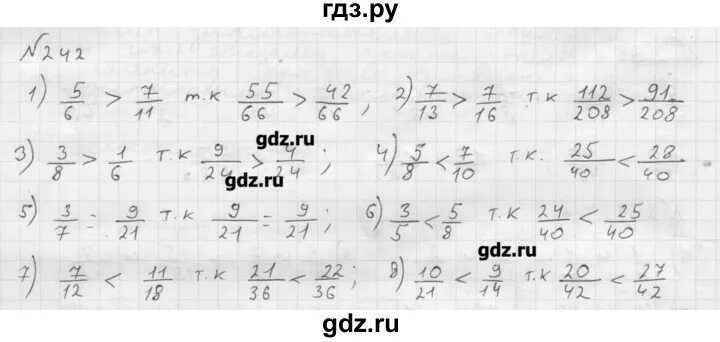 гдз.ру
№242
1) 5/6 > 7/11 т.к 55/66 > 42/66 ; 2) 7/13 > 7/16 т.к 112/208 > 91/208
gdz.ru
3) 3/8 > 1/6 т.к 9/24 > 4/24 ; 4) 5/8 < 7/10 т.к. 25/40 < 28/40
gdz.ru
5) 3/7 = 9/21 т.к 9/21 = 9/21 ; 6) 3/5 < 5/8 т.к 24/40 < 25/40
gdz.ru
7) 7/12 < 11/18 т.к 21/36 < 22/36 ; 8) 10/21 < 9/14 т.к 20/42 < 27/42
gdz.ru